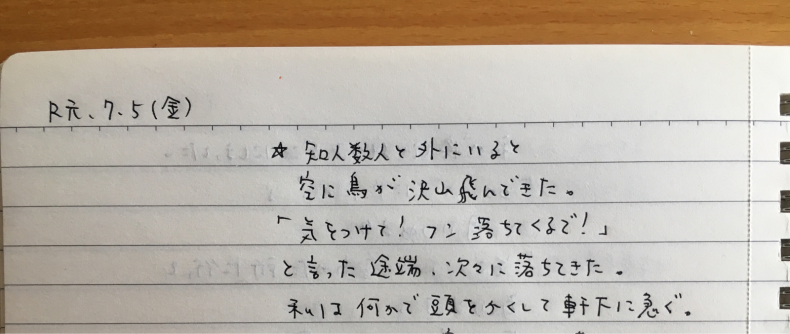 R元、7.5(金)
☆ 知人数人と外にいると
空に鳥が沢山飛んできた。
「気をつけて!フン落ちてくるで!」
と言った途端、次々に落ちてきた。
私は何かで頭をかくして軒下に急ぐ。